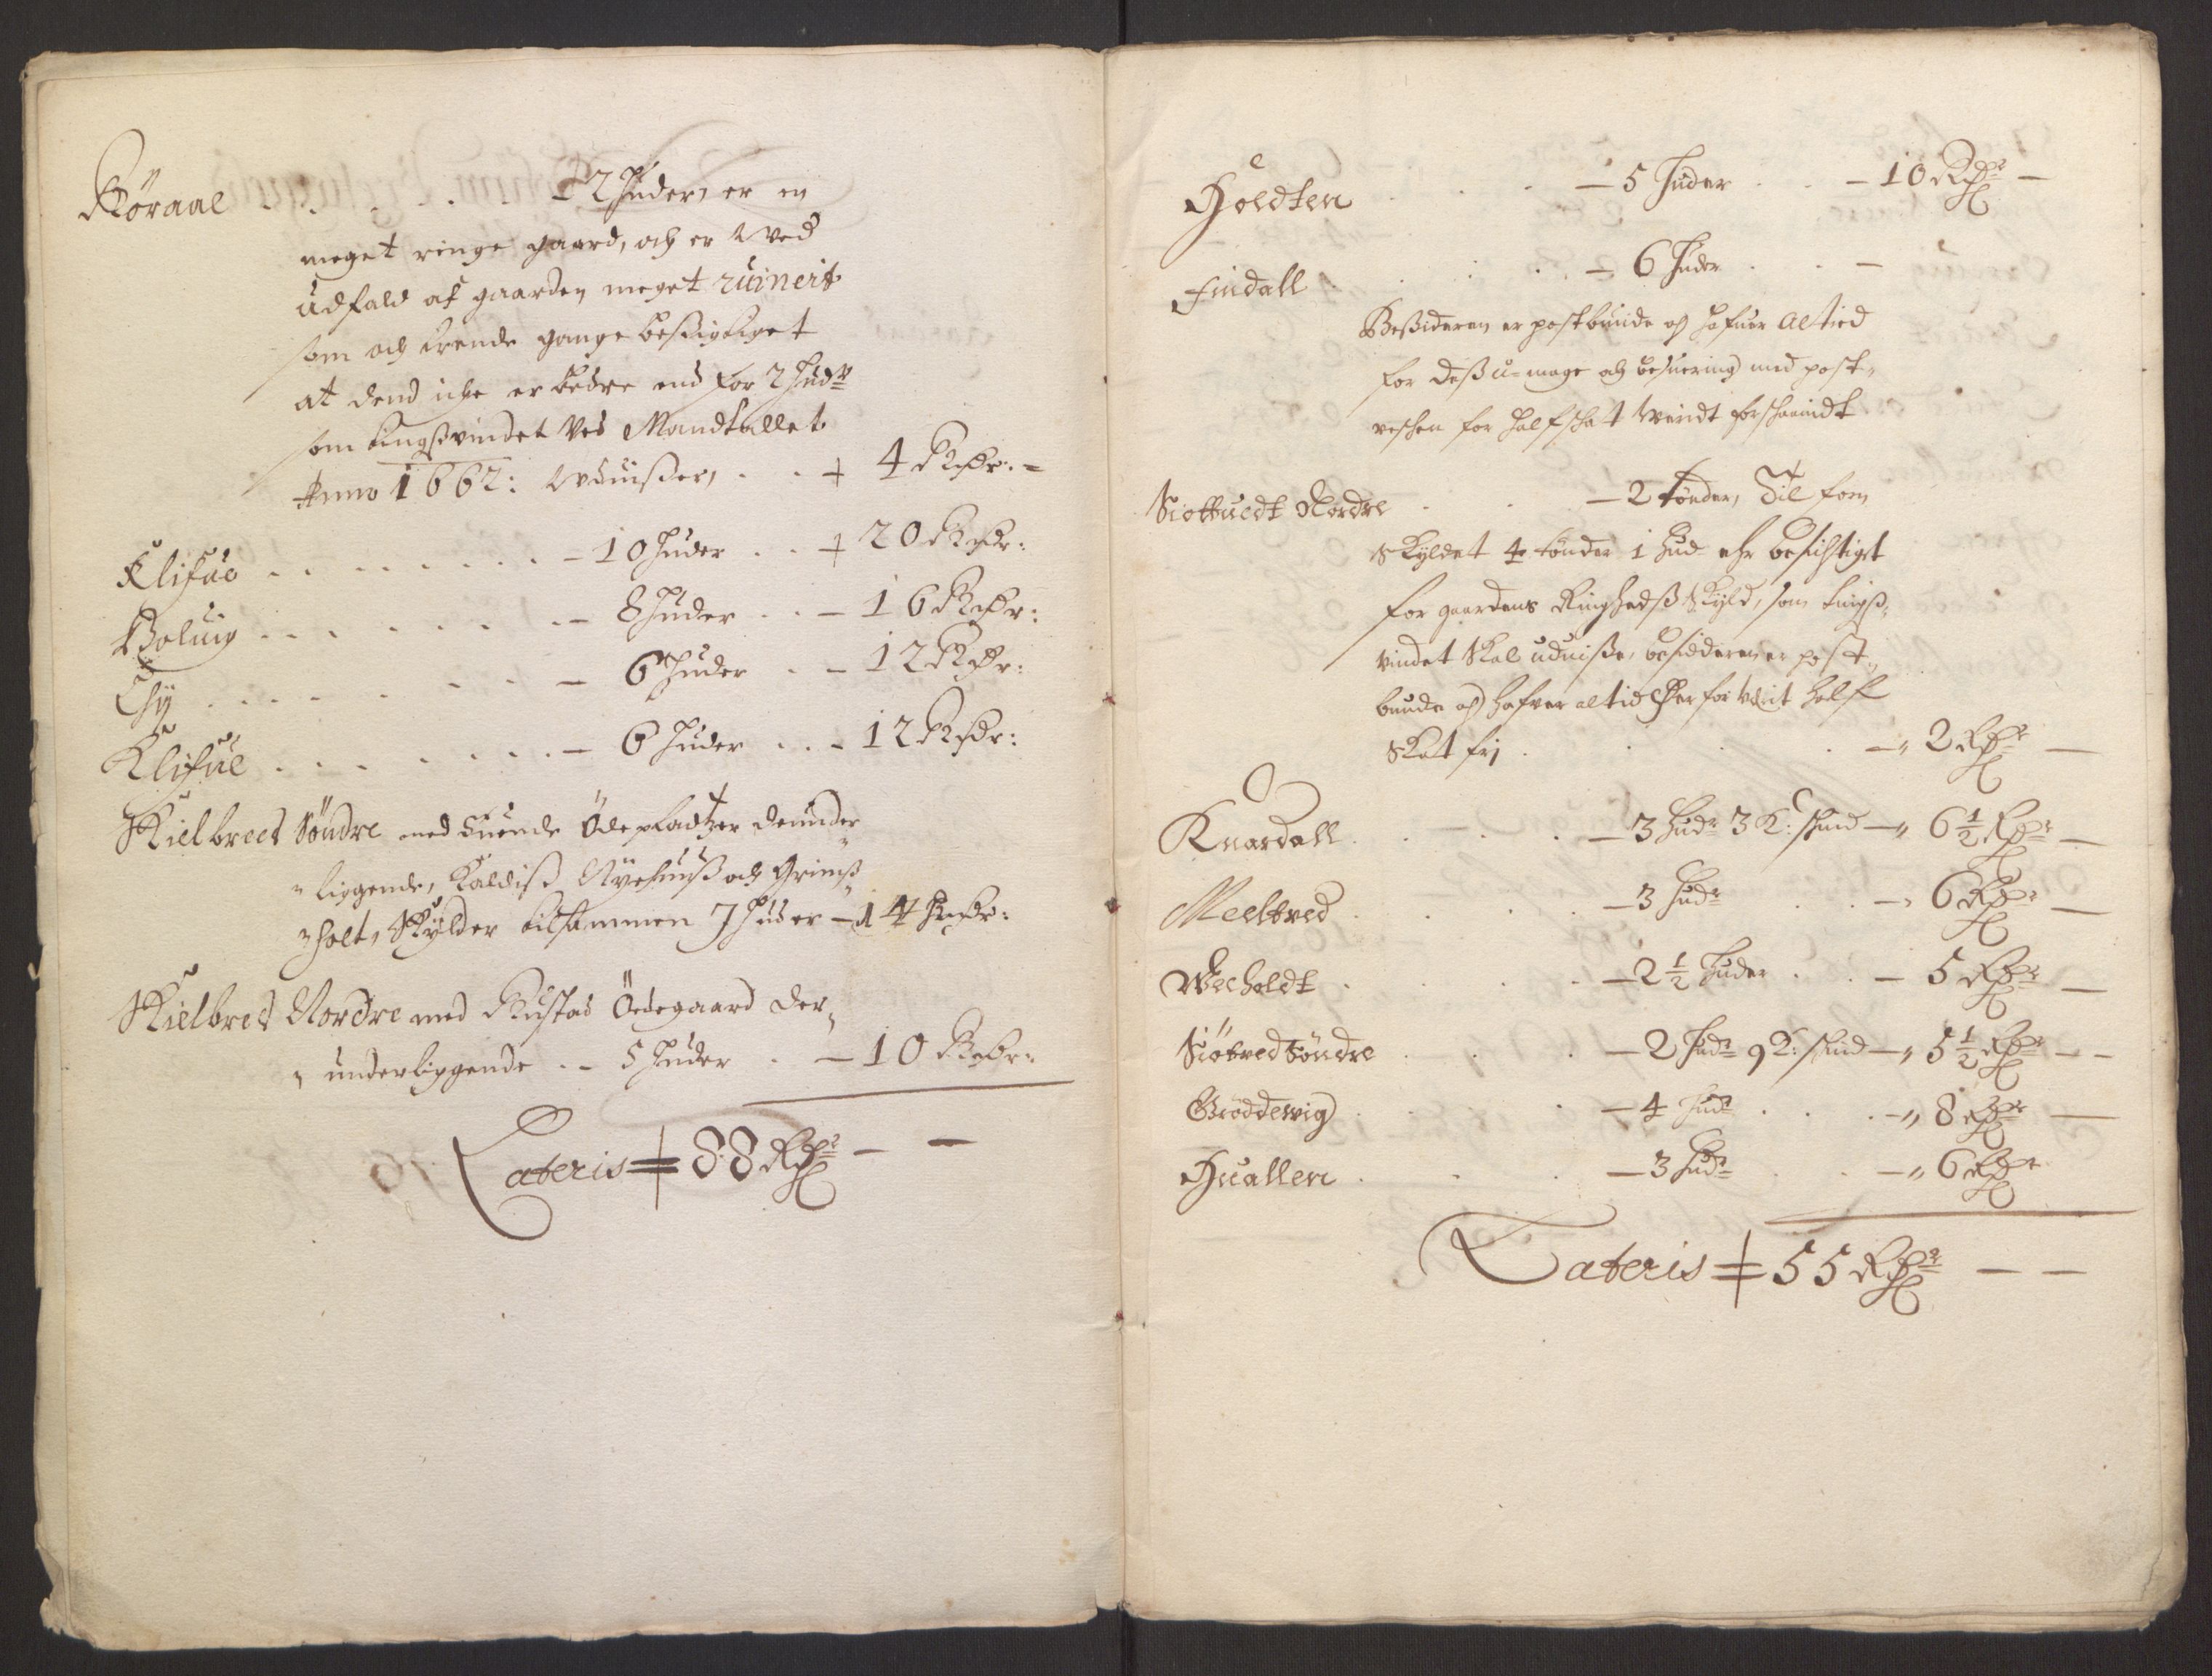 Røraae . . . . . 12 Huder, er en
meget ringe gaard, och er Wed
udfald af gaarden meget ruinert
som och trende gange besigtiget
at dend iche er bedre end for 2 Hudr
som tingsvindet Ved Mandtallet
Anno 1662: Udviiser, . . 4 Rdr:
Klifue . . . . . . . – 10 Huder . . 20 Rdr:
Boluig . . . . . . – 8 Huder . – 16 Rdr:
Thy . . . . . . – 6 Huder . – 12 Rdr:
Klifue . . . . . . . – 6 Huder . . – 12 Rdr:
Kielbred Søndre med tuende Øde pladtzer derunder
liggende, Kaldis Nyehuus och Grims
holt, Skylder tilsammen 7 Huder – 14 Rdr:
Kielbred Nordre med Rustad Ødegaard der
underliggende . . 5 Huder . – 10 Rdr:
Lateris 88 Rdr – –
Holdten . . . – 5 Huder . . – 10 Rdr –
Findall . . . . – 6 Huder . . –
Besideren er postbunde och hafuer altied
for dess u-mage och besuering med post
reschen for halfschat weridt forschaanidt
Siottuedt Nordre . . . – 2 tønder, Til forn
Skyldet 4 tønder 1 Hud ehr besichtiget
for gaardens Ringheds Skyld, som tings
vindet Skal uduise, besidderen er post
bunde och hafver altid Herfor verit half
Skat frj . . . . – 2 Rdr –
Knardall . . . – 3 Hudr 3 K: skind – 6 1/2 Rdr –
Meelbred . . . . – 3 Hudr . . – 6 Rdr –
Wecholdt . . . . – 2 1/2 Huder . . – 5 Rdr –
Siøtved Søndre . . . – 2 Hudr 9 K: skind – 5 1/2 Rdr – –
Grøddewig . . . . – 4 Hudr . . . – 8 Rdr –
Huallen . . . – 3 Hudr . . – 6 Rdr
Lateris 55 Rdr – –